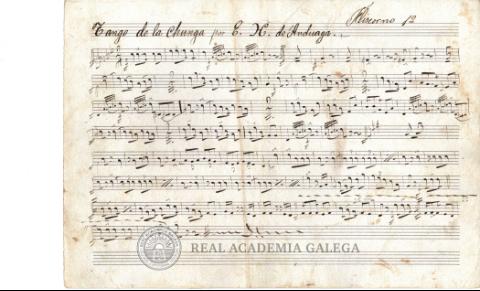 12
Tango de la Chunga por E. N. de Anduaga.
REAL ACADEMIA GALEGA